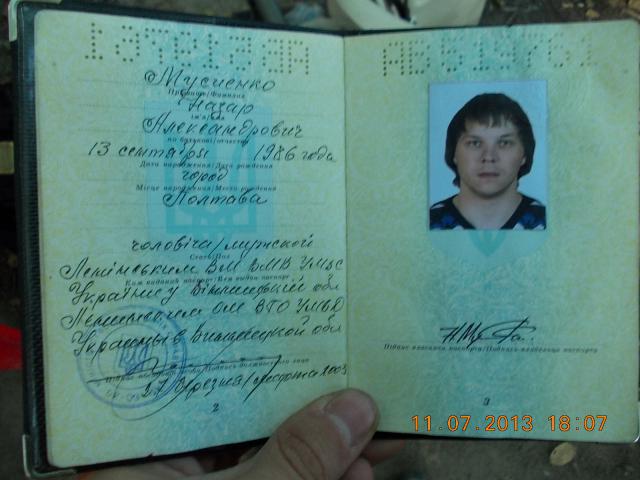 АВ519751
Мусиенко
Прізвище/Фамилия
Назар
ім'я/имя
Александрович
по батькові/отчество
13 сентября 1986 года
Дата народження/Дата рождения
город
Місце народження/Место рождения
Полтава
чоловіча/мужской
Стать/Пол
Ленінським ВМ ВМВ УМВС
Ким виданий паспорт/Кем выдан паспорт
України у Вінницькій обл
Ленинским ОМ ВГО УМВД
Украины в Винницкой обл
Підпис посадової особи/Подпись должностного лица
27 березня/марта 2003
2
Підпис власника паспорта/Подпись владельца паспорта
3
11.07.2013 18:07